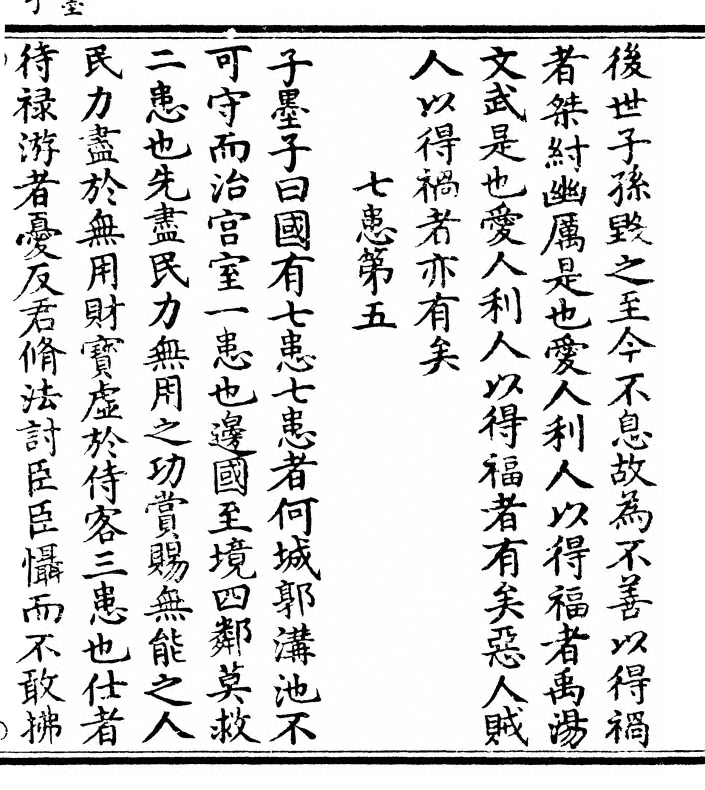 後世子孫毀之至今不息故為不善以得禍
者桀紂幽厲是也愛人利人以得福者禹湯
文武是也愛人利人以得福者有矣惡人賊
人以得禍者亦有矣
七患第五
子墨子曰國有七患七患者何城郭溝池不
可守而治宫室一患也邊國至境四鄰莫救
二患也先盡民力無用之功賞賜無能之人
民力盡於無用財寶虛於待客三患也仕者
待禄游者憂反君脩法討臣臣懾而不敢拂